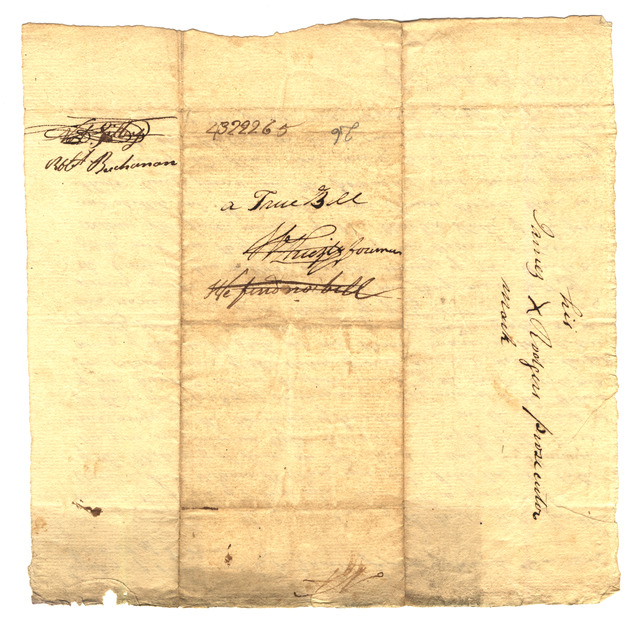 Robt Buchanan
4322265 96
a True Bill
foreman
We find no bill
his
James X Rodgers prosecutor
mark